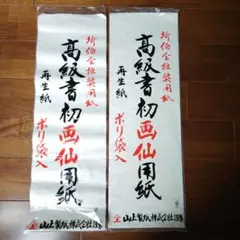 用紙
高級書初画仙用紙
再生紙
ポリ袋入
山上製紙株式会社
用紙
高級書初画仙用紙
再生紙
ポリ袋入
山上製紙株式会社